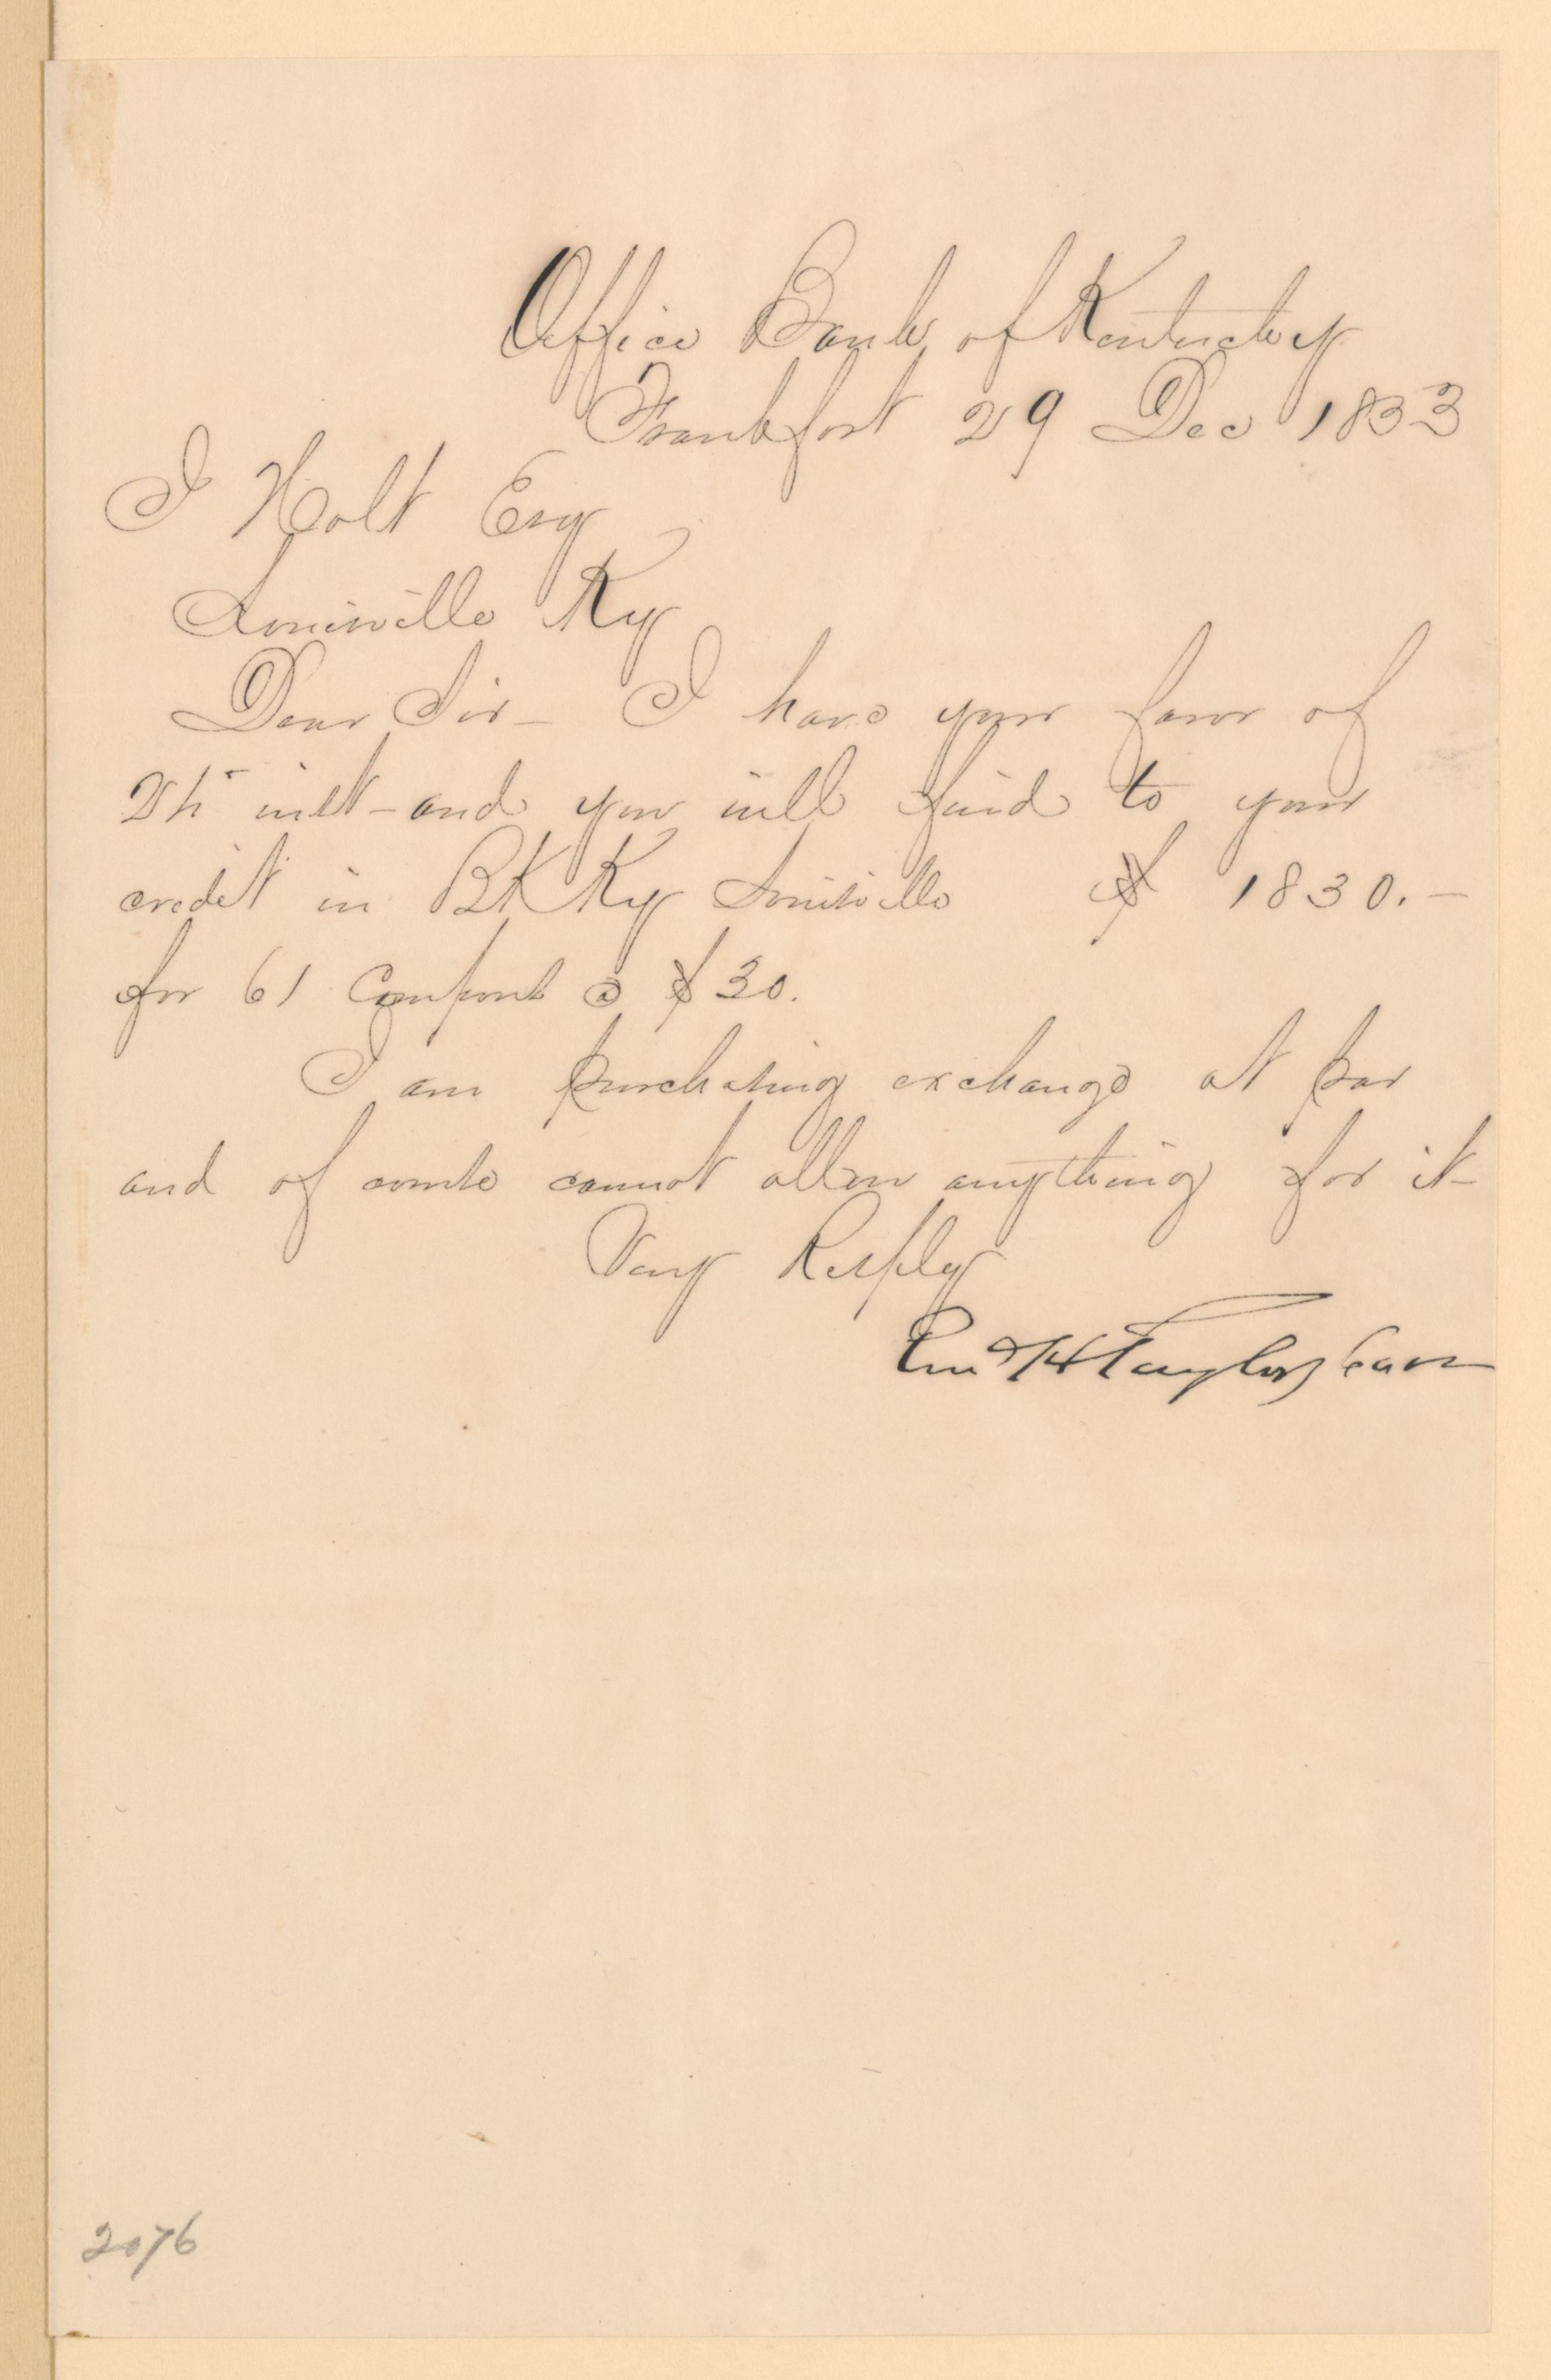 Office Bank of Kentucky
Frankfort 29 Dec 1833
J Holt Esq
Louisville Ky
Dear Sir - I have your favor of
inst - and you will find to your
credit in BK Ky Louisville $ 1830. -
for 61 Coupons @ $30.
I am purchasing exchange at par
and of course cannot allow anything for it -
Very Resply
Edmd H Taylor Cash
2076